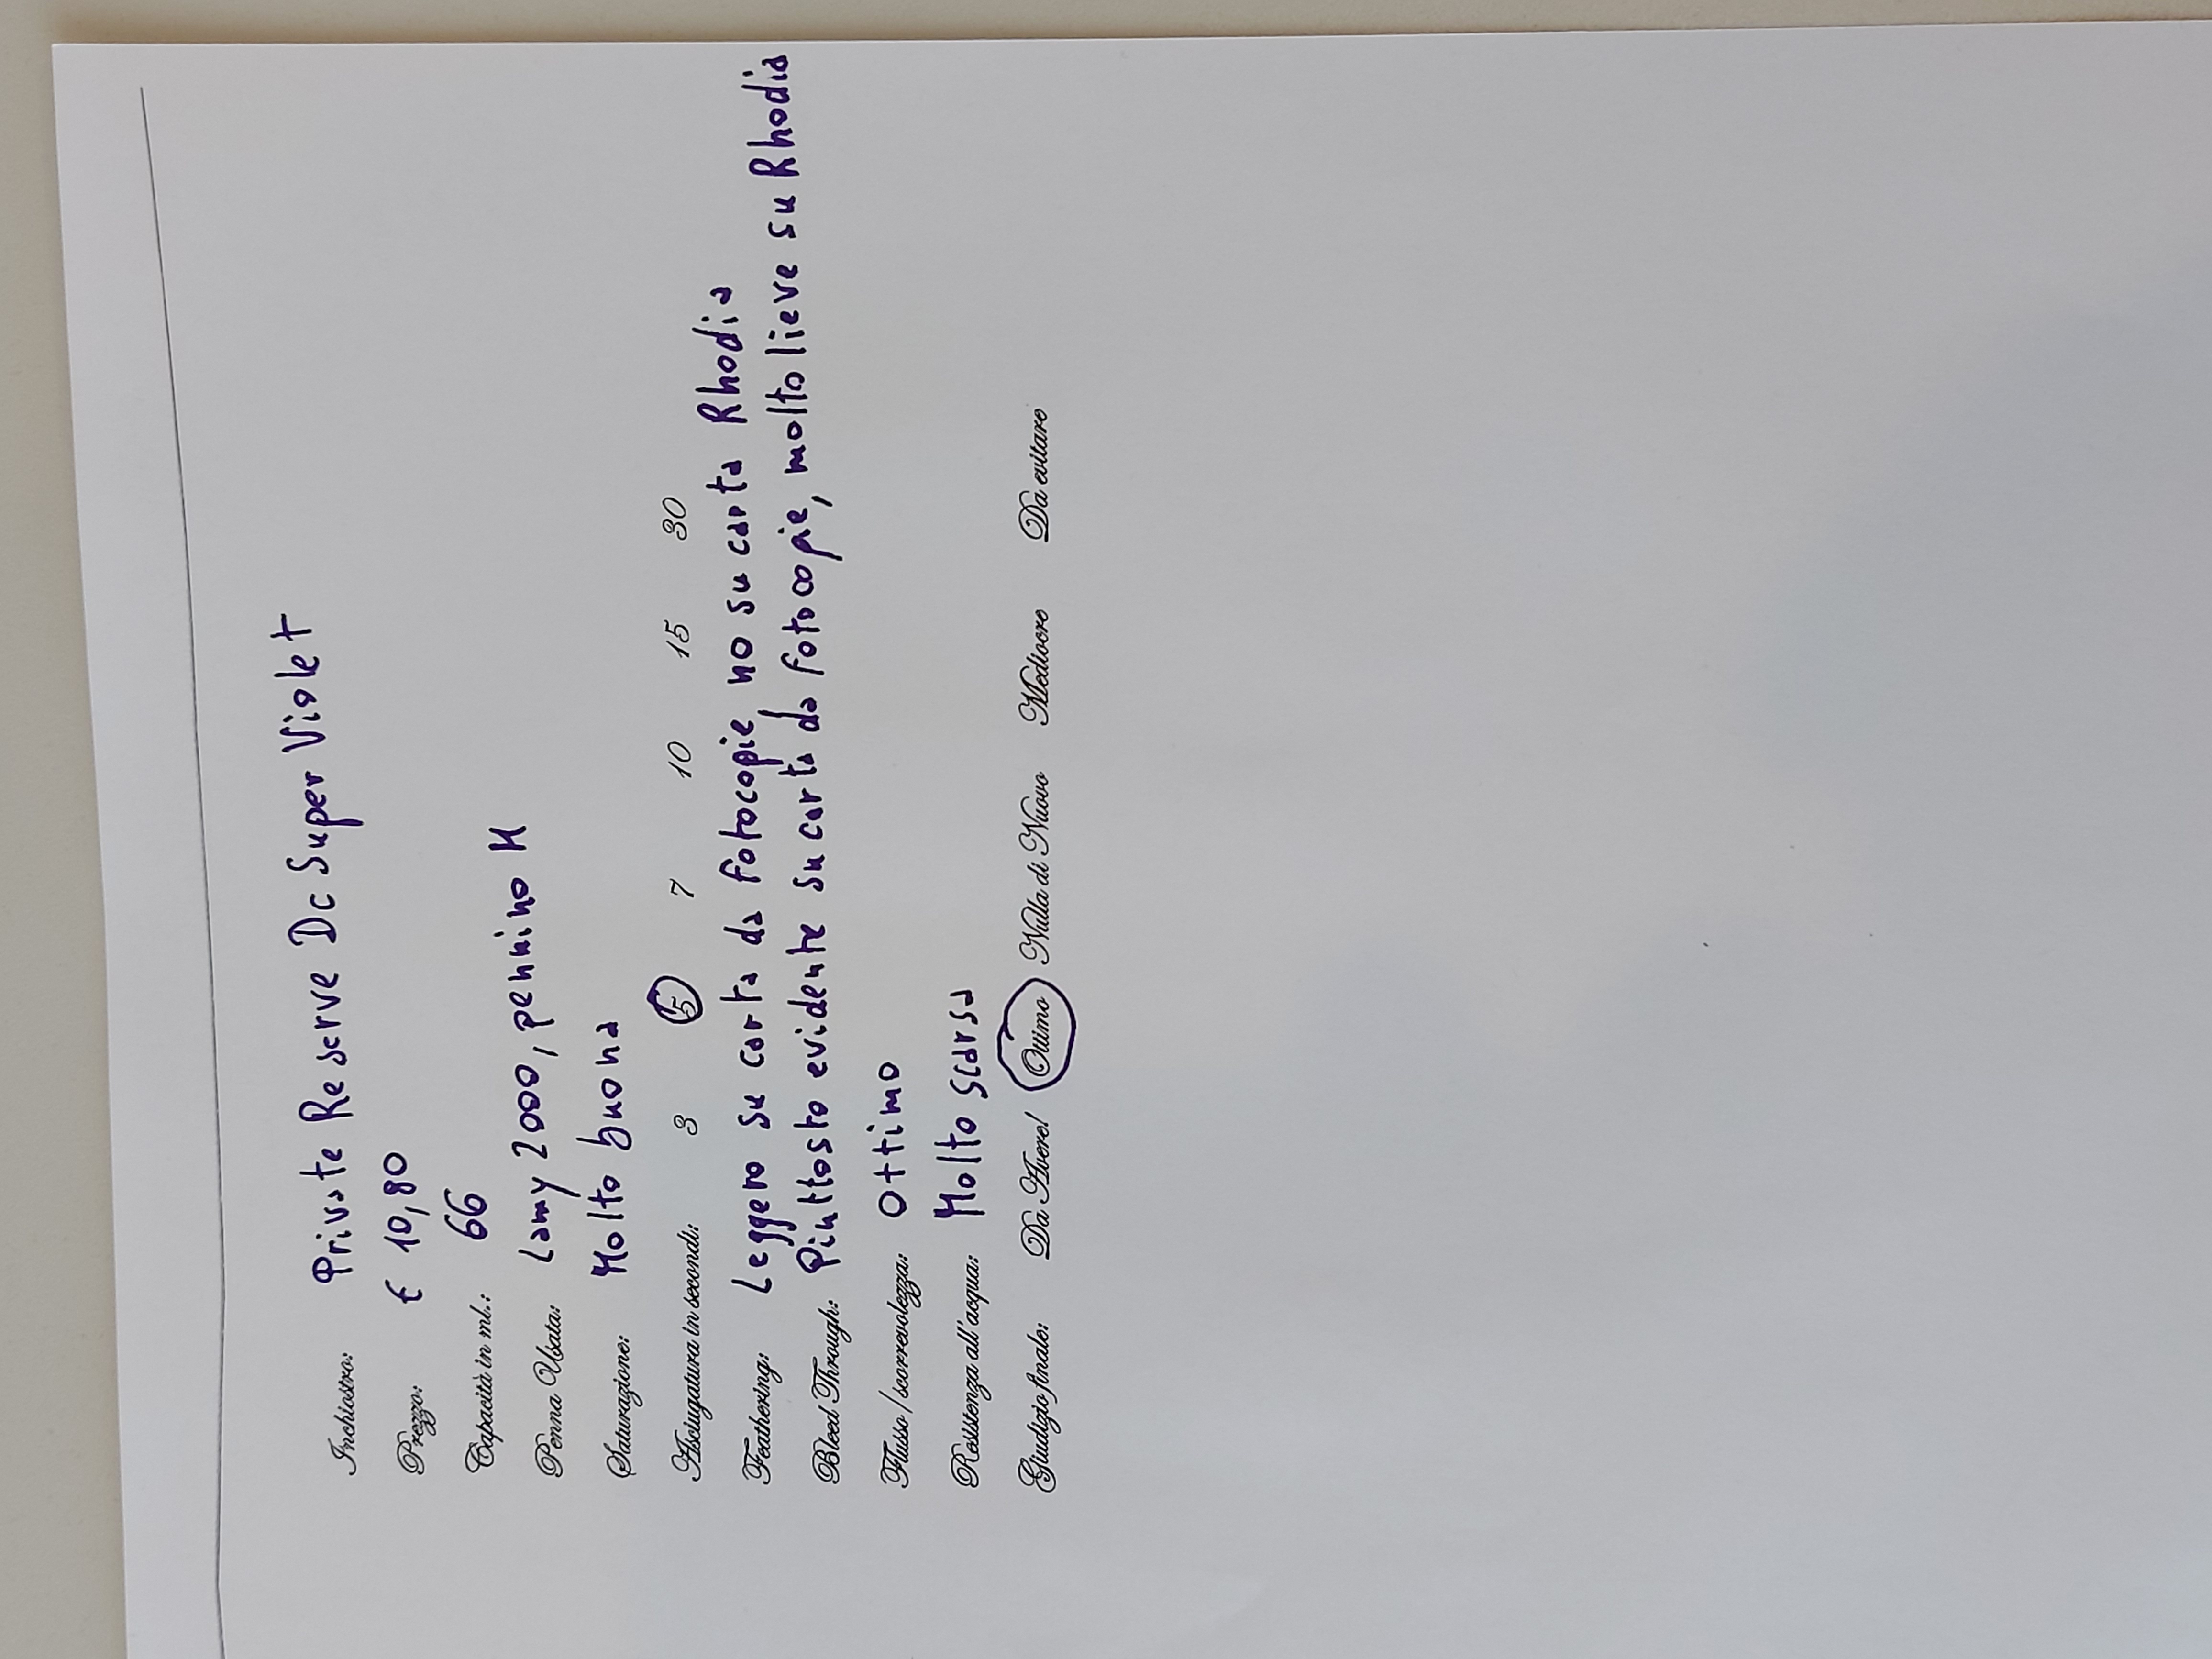 Inchiostro: Private Reserve Dc Super Violet
Prezzo: € 10,80
Capacità in ml.: 66
Penna Usata: Lamy 2000, pennino M
Saturazione: Molto buona
Asciugatura in secondi: 3 5 7 10 15 30
Feathering: Leggero su carta da fotocopie, no su carta Rhodia
Bleed Through: Piuttosto evidente su carta da fotocopie, molto lieve su Rhodia
Flusso / scorrevolezza: Ottimo
Resistenza all'acqua: Molto scarsa
Giudizio finale: Da Avere! Ottimo Nulla di Nuovo Mediocre Da evitare